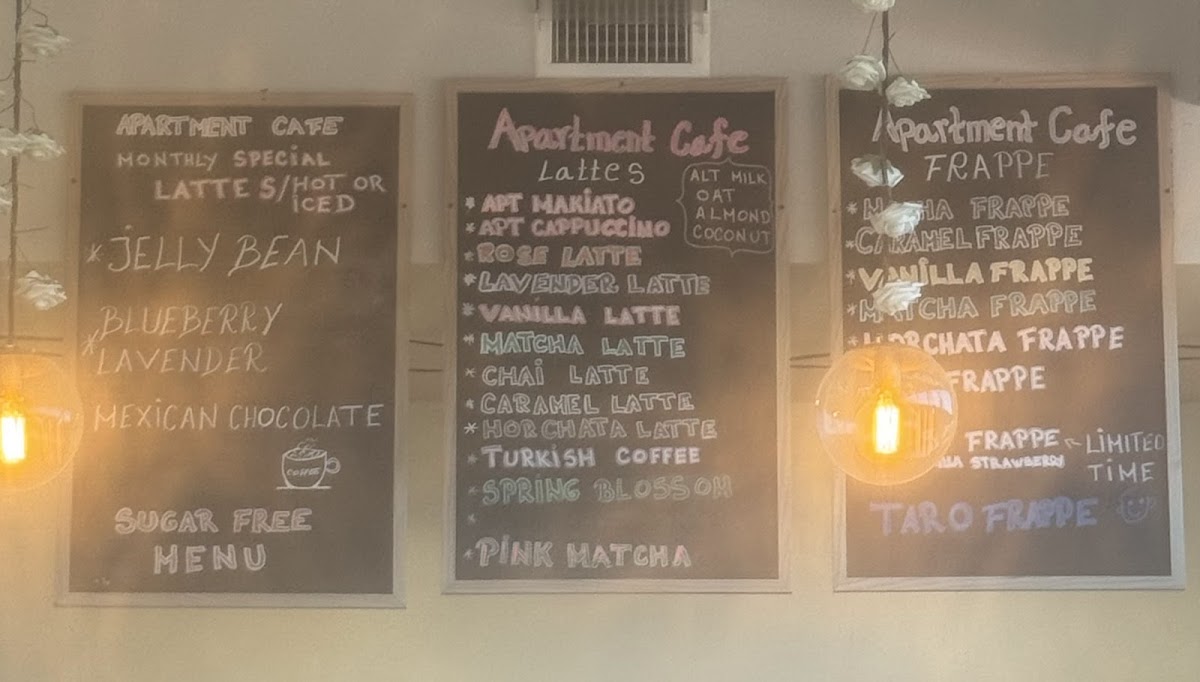 APARTMENT CAFE
MONTHLY SPECIAL
LATTES/HOT OR
ICED
* JELLY BEAN
BLUEBERRY
* LAVENDER
MEXICAN CHOCOLATE
COFFEE
SUGAR FREE
MENU
Apartment Cafe
Lattes
ALT MILK
OAT
ALMOND
COCONUT
* APT MAKIATO
* APT CAPPUCCINO
* ROSE LATTE
* LAVENDER LATTE
* VANILLA LATTE
* MATCHA LATTE
* CHAI LATTE
* CARAMEL LATTE
* HORCHATA LATTE
* TURKISH COFFEE
* SPRING BLOSSOM
*
* PINK MATCHA
Apartment Cafe
FRAPPE
* FRAPPE
* CARAMEL FRAPPE
* VANILLA FRAPPE
* MATCHA FRAPPE
* HORCHATA FRAPPE
FRAPPE
FRAPPE ← LIMITED
STRAWBERRY TIME
TARO FRAPPE